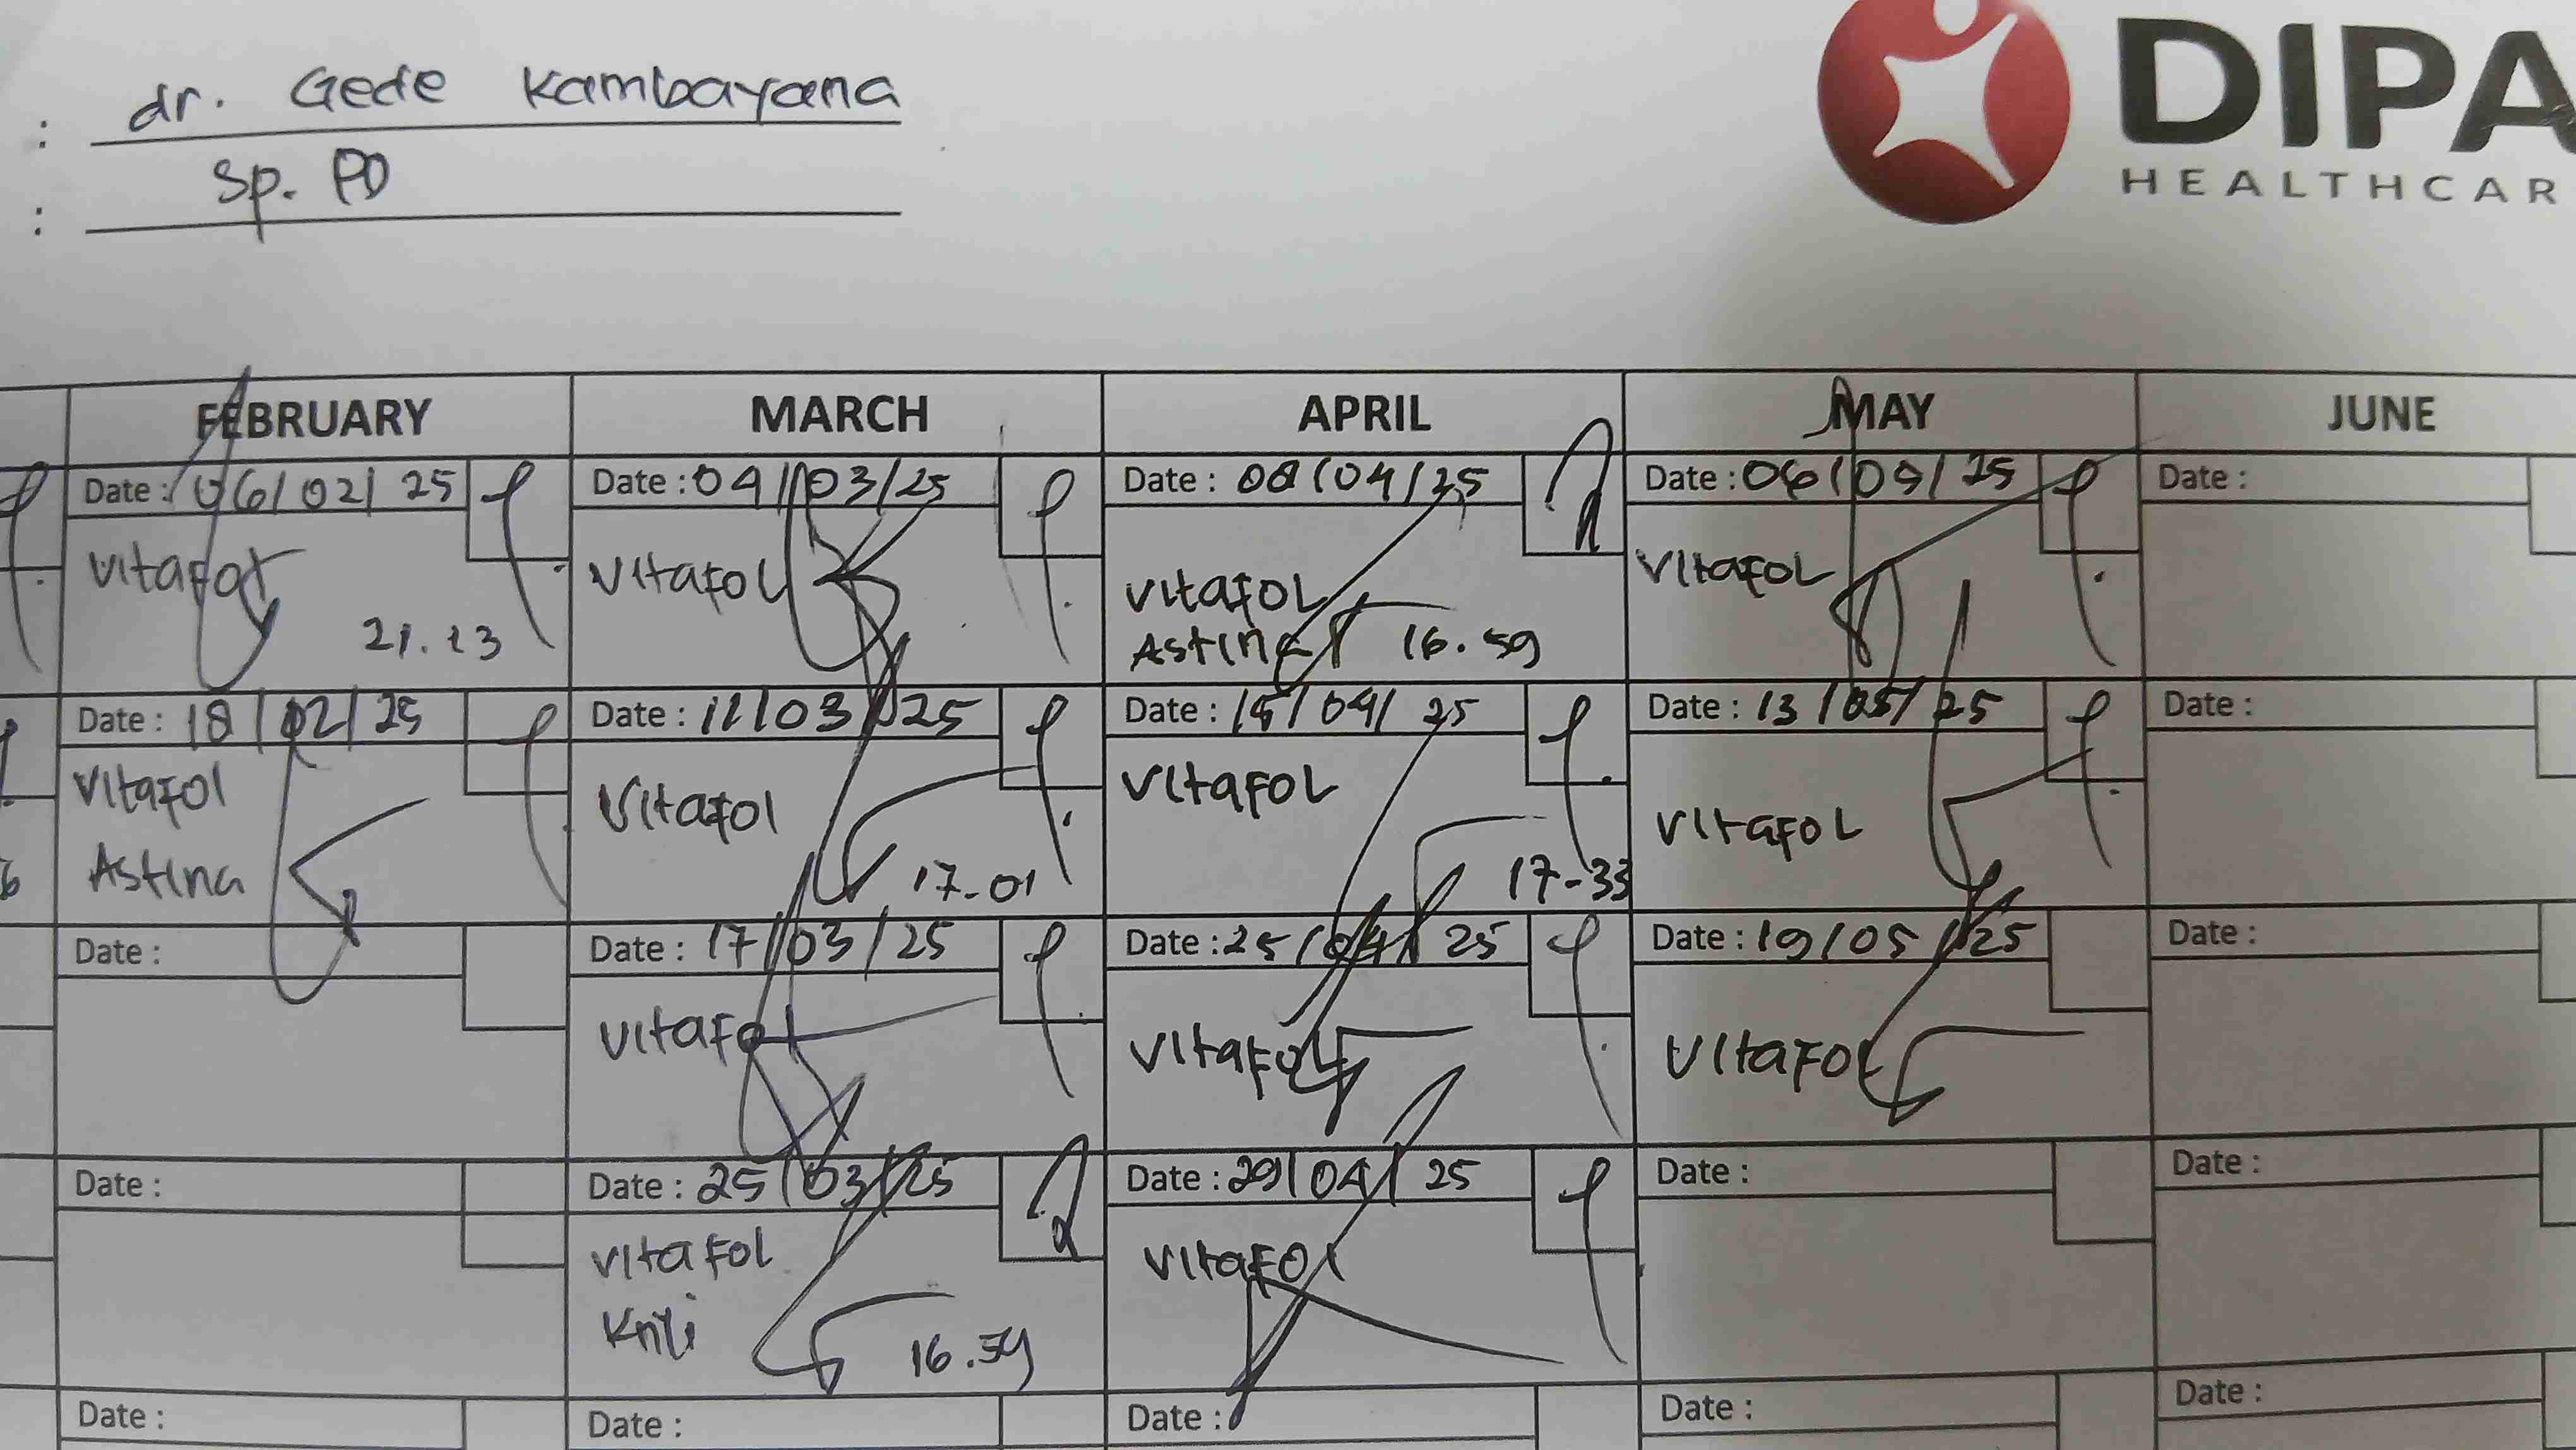 : dr. Gede Kambayana
: Sp. PD
DIPA
HEALTHCAR
FEBRUARY MARCH APRIL MAY JUNE
Date : 06/02/25 Date : 04/03/25 Date : 08/04/25 Date : 06/05/25 Date :
Vitafol Vitafol Vitafol Vitafol
21.23 Astina 16.59
Date : 18/02/25 Date : 11/03/25 Date : 15/04/25 Date : 13/05/25 Date :
Vitafol Vitafol Vitafol Vitafol
6 Astina 17-01 17-33
Date : Date : 17/03/25 Date : 25/04/25 Date : 19/05/25 Date :
Vitafol Vitafol Vitafol
Date : Date : 25/03/25 Date : 29/04/25 Date : Date :
Vitafol Vitafol
16.59
Date : Date : Date : Date : Date :